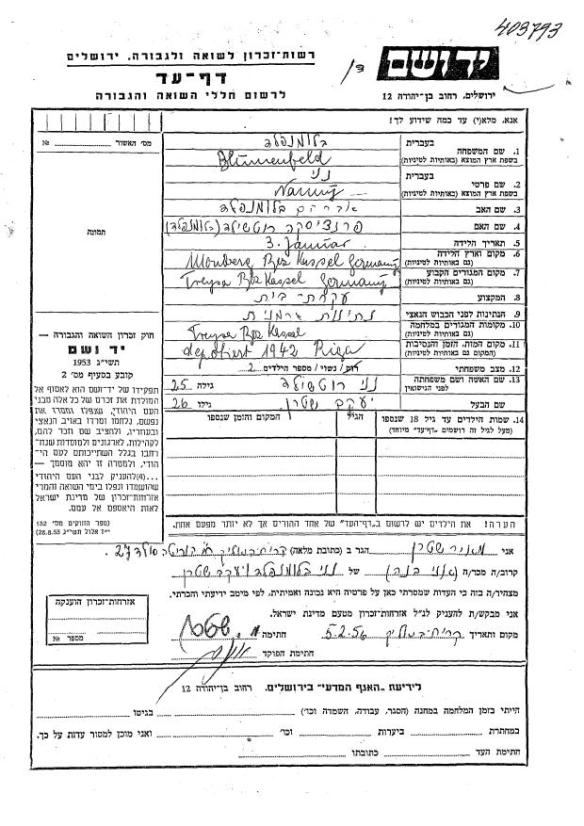 403793
רשות-זכרון לשואה ולגבורה, ירושלים
יד ושם
דף-עד
לרשום חללי השואה והגבורה
ירושלים, רחוב בן-יהודה 12
אנא, מלא(י) עד כמה שידוע לך!
מס' האשור
№
№
תמונה
1. שם המשפחה
בעברית
בלומנפלד
בשפת ארץ המוצא (באותיות לטיניות)
Blumenfeld
2. שם פרטי
בעברית
נני
בשפת ארץ המוצא (באותיות לטיניות)
Nanny
3. שם האב
אברהם בלומנפלד
4. שם האם
פרנציסקה רוטשילד (בלומנפלד)
5. תאריך הלידה
3. Januar
6. מקום וארץ הלידה
(גם באותיות לטיניות)
Bez Kassel Germany
7. מקום המגורים הקבוע
(גם באותיות לטיניות)
Treysa Bez Kassel Germany
8. המקצוע
עקרת-בית
9. הנתינות לפני הכבוש הנאצי
נתינות גרמנית
10. מקומות המגורים במלחמה
(גם באותיות לטיניות)
Treysa Bez Kassel
11. מקום המות, הזמן והנסיבות
(המקום גם באותיות לטיניות)
1942 Riga
12. מצב משפחתי
רוק / נשוי / מספר הילדים 2
13. שם האשה ושם משפחתה
לפני הנישואין
נני רוטשילד
גילה 25
שם הבעל
יעקב שטרן
גילו 26
14. שמות הילדים עד גיל 18 שנספו
(מעל לגיל זה רושמים "דף-עד" מיוחד)
הגיל
המקום והזמן שנספו
חוק זכרון השואה והגבורה —
יד ושם
תשי"ג 1953
קובע בסעיף מס' 2
תפקידו של יד-ושם הוא לאסוף אל
המולדת את זכרם של כל אלה מבני
העם היהודי, שנפלו ומסרו את
נפשם, נלחמו ומרדו באויב הנאצי
ובעוזריו, ולהציב שם וזכר להם,
לקהילות, לארגונים ולמוסדות שנח-
רבו בגלל השתייכותם לעם הי-
הודי, ולמטרה זו יהא מוסמך —
...(4) להעניק לבני העם היהודי
שהושמדו ונפלו בימי השואה והמרי
אזרחות-זכרון של מדינת ישראל
לאות היאספם אל עמם.
(ספר החוקים מס' 132
י"ז אלול תשי"ג 28.8.53)
הערה! את הילדים יש לרשום ב"דף-העד" של אחד ההורים אך לא יותר מפעם אחת.
אני מאיר שטרן הגר ב (כתובת מלאה) קרית-ביאליק
קרוב/ה מכר/ה של נני בלומנפלד ויעקב שטרן
מצהיר/ה בזה כי העדות שמסרתי כאן על פרטיה היא נכונה ואמיתית, לפי מיטב ידיעתי והכרתי.
אני מבקש/ת להעניק לנ"ל אזרחות-זכרון מטעם מדינת ישראל.
מקום ותאריך קרית-ביאליק 5.2.56 חתימה
חתימת הפוקד
אזרחות-זכרון הוענקה
מספר №
לידיעת "האגף המדעי" בירושלים, רחוב בן-יהודה 12
הייתי בזמן המלחמה במחנה (הסגר, עבודה, השמדה וכו') בגיטו
במחתרת ביערות וכו' ואני מוכן למסור עדות על כך.
חתימת העד כתובתו